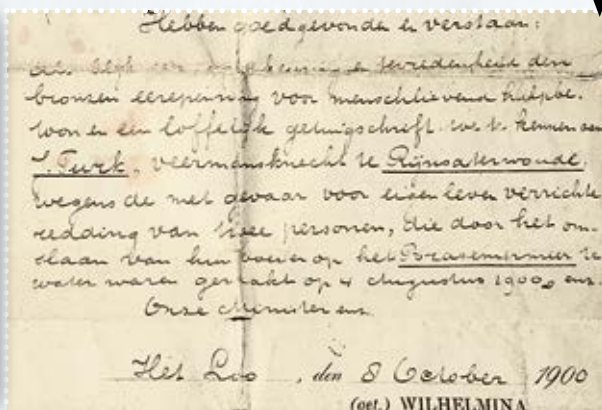 Hebben goedgevonden en verstaan:
als blijk van goedkeuring en tevredenheid den
bronzen eerepenning voor menschlievend hulpbe-
toon en een loffelijk getuigschrift toe te kennen aan
J. Turk, veermansknecht te Rijnsaterwoude,
wegens de met gevaar voor eigen leven verrichte
redding van twee personen, die door het om-
slaan van hun boeier op het Brasemermeer te
water waren geraakt op 4 Augustus 1900, enz.
Onze Minister enz.
Het Loo, den 8 October 1900
(get.) WILHELMINA